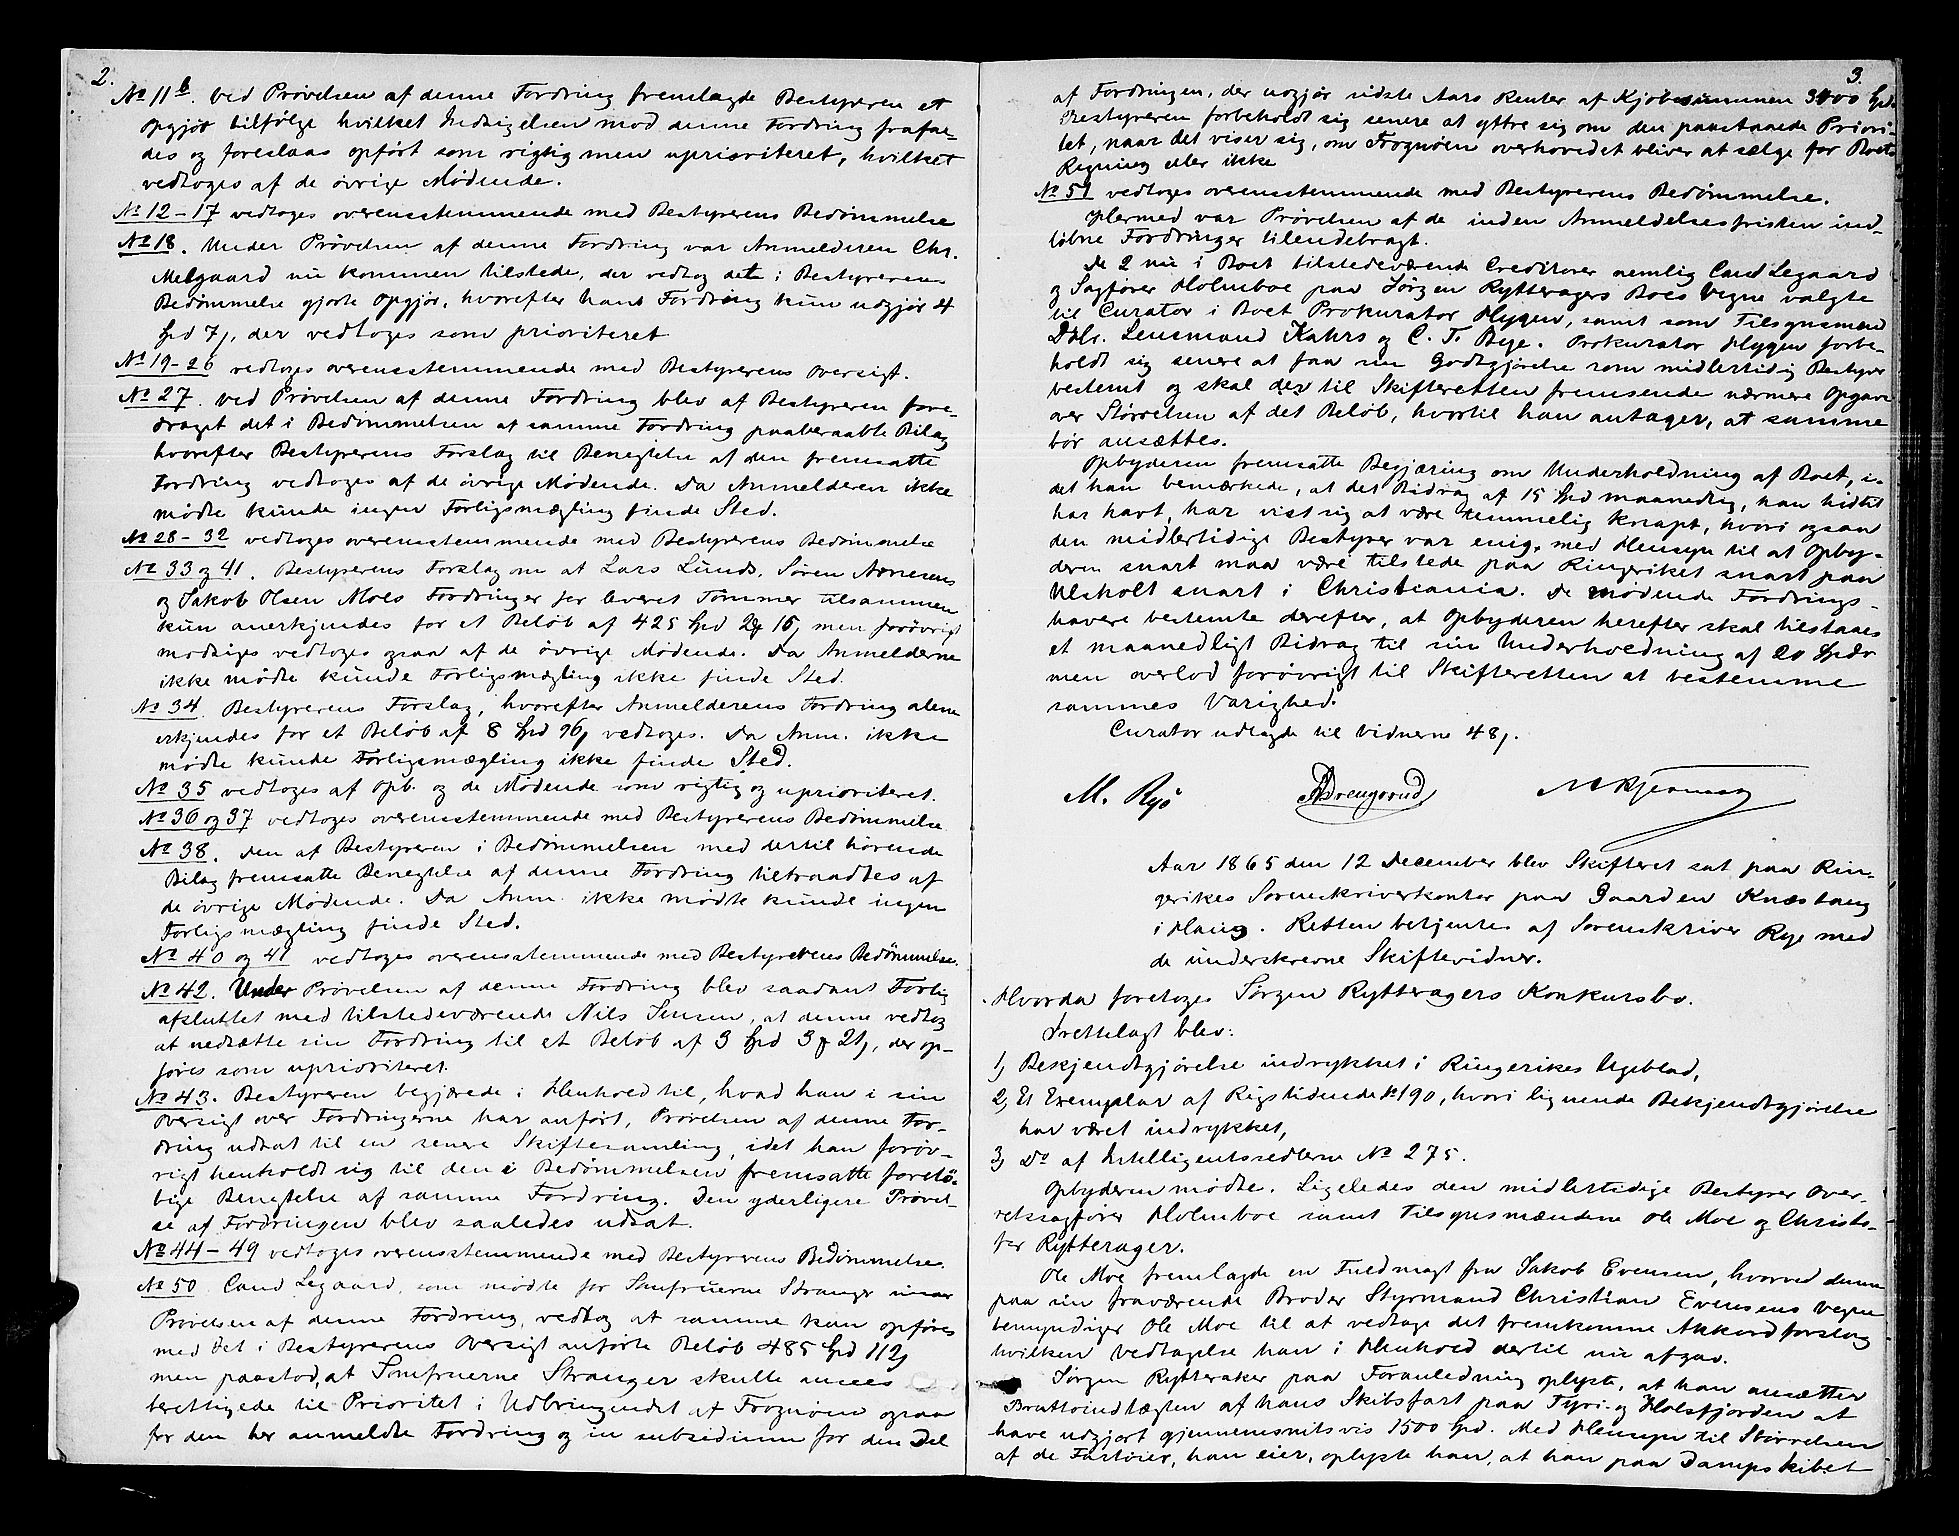 2.
No 11b. Ved Prøvelsen af denne Fordring fremlagde Bestyreren et
Opgjør tilfølge hvilket Indsigelsen mod denne Fordring frafal-
des og foreslaas opført som rigtig men uprioriteret, hvilket
vedtoges af de øvrige Mødende.
No 12-17 vedtoges overensstemmende med Bestyrerens Bedømmelse
No 18. Under Prøvelsen af denne Fordring var Anmelderen Chr.
Melgaard nu kommen tilstede, der vedtog det i Bestyrerens
Bedømmelse gjorte Opgjør, hvorefter hans Fordring kun udgjør 4
Spd 7 s, der vedtoges som prioriteret
No 19-26 vedtoges overensstemmende med Bestyrerens Oversigt.
No 27. Ved Prøvelsen af denne Fordring blev af Bestyreren fore-
draget det i Bedømmelsen af samme Fordring paaberaabte Bilag
hvorefter Bestyrerens Forslag til Benegtelse af den fremsatte
Fordring vedtoges af de øvrige Mødende. Da Anmelderen ikke
mødte kunde ingen Forligsmægling finde Sted.
No 28-32 vedtoges overensstemmende med Bestyrerens Bedømmelse
No 33 og 41. Bestyrerens Forslag om at Lars Lunds, Søren Arnesens
og Jakob Olsen Moes Fordringer for leveret Tømmer tilsammen
kun anerkjendes for et Beløb af 425 Spd 2 15 s men forøvrigt
modsiges vedtoges ogsaa af de øvrige Mødende. Da Anmelderne
ikke mødte kunde Forligsmægling ikke finde Sted.
No 34. Bestyrerens Forslag, hvorefter Anmelderens Fordring alene
erkjendes for et Beløb af 8 Spd 96 s vedtoges. Da Anm. ikke
mødte kunde Forligsmægling ikke finde Sted.
No 35 vedtoges af Opb. og de Mødende som rigtig og uprioriteret.
No 36 og 37 vedtoges overensstemmende med Bestyrerens Bedømmelse
No 38. Den af Bestyreren i Bedømmelsen med dertil hørende
Bilag fremsatte Benegtelse af denne Fordring tiltraadtes af
de øvrige Mødende. Da Anm. ikke mødte kunde ingen
Forligsmægling finde Sted.
No 40 og 41 vedtoges overensstemmende med Bestyrerens Bedømmelse.
No 42. Under Prøvelsen af denne Fordring blev saadant Forlig
afsluttet med tilstedeværende Nils Jensen, at denne vedtog
at nedsætte sin Fordring til et Beløb af 3 Spd 3 21 s, der op-
føres som uprioriteret.
No 43. Bestyreren begjærede i Henhold til, hvad han i sin
Oversigt over Fordringerne har anført, Prøvelsen af denne For-
dring udsat til en senere Skiftesamling, idet han forøv-
rigt henholdt sig til den i Bedømmelsen fremsatte forelø-
bige Benegtelse af samme Fordring. Den yderligere Prøvel-
se af Fordringen blev saaledes udsat.
No 44-49 vedtoges overensstemmende med Bestyrerens Bedømmelse.
No 50. Cand Legaard, som mødte for Jomfruerne Stranger under
Prøvelsen af denne Fordring, vedtog at samme kan opføres
med det i Bestyrerens Oversigt anførte Beløb 485 Spd 112 s
men paastod, at Jomfruerne Stranger skulle ansees
berettigede til Prioritet i Udbringendet af Frognøen ogsaa
for den her anmeldte Fordring og in subsidium for den Del
3.
af Fordringen, der udgjør sidste Aars Renter af Kjøbesummen 3400 Spd.
Bestyreren forbeholdt sig senere at yttre sig om den paastaaede Priori-
tet, naar det viser sig, om Frognøen overhovedet bliver at sælge for Boets
Regning eller ikke
No 51 vedtoges overensstemmende med Bestyrerens Bedømmelse.
Hermed var Prøvelsen af de inden Anmeldelsesfristen ind-
løbne Fordringer tilendebragt.
De 2 nu i Boet tilstedeværende Creditorer nemlig Cand Legaard
og Sagfører Holmboe paa Jørgen Rytteragers Boes Vegne valgte
til Curator i Boet Prokurator Hygen, samt som Tilsynsmænd
DHr. Lensmand Kahrs og C. T. Bye. Prokurator Hygen forbe-
holdt sig senere at faa sin Godtgjørelse som midlertidig Bestyrer
bestemt og skal der til Skifteretten fremsende nærmere Opgave
over Størrelsen af det Beløb, hvortil han antager, at samme
bør ansættes.
Opbyderen fremsatte Begjæring om Underholdning af Boet, i-
det han bemærkede, at det Bidrag af 15 Spd maanedlig, han hidtil
har havt, har vist sig at være temmelig knapt, hvori ogsaa
den midlertidige Bestyrer var enig, med Hensyn til at Opby-
deren snart maa være tilstede paa Ringeriket snart paa
Ulsholt snart i Christiania. De mødende Fordrings-
havere bestemte derefter, at Opbyderen herefter skal tilstaaes
et maanedligt Bidrag til sin Underholdning af 20 Spdr
men overlod forøvrigt til Skifteretten at bestemme
sammes Varighed.
Curator udlagde til Vidnerne 48 s.
M. Rye
Aar 1865 den 12 December blev Skifteret sat paa Rin-
gerikes Sorenskriverkontor paa Gaarden Knæstang
i Haug. Retten betjentes af Sorenskriver Rye med
de underskrevne Skiftevidner.
Hvorda foretoges Jørgen Rytteragers Konkursbo.
Irettelagt blev:
1, Bekjendtgjørelse indrykket i Ringerikes Ugeblad,
2, Et Exemplar af Rigstidende No 190, hvori lignende Bekjendtgjørelse
har været indrykket,
3, Do af Intelligentssedlerne No 275.
Opbyderen mødte. Ligeledes den midlertidige Bestyrer Over-
retssagfører Holmboe samt Tilsynsmændene Ole Moe og Christo-
fer Rytterager.
Ole Moe fremlagde en Fuldmagt fra Jakob Evensen, hvorved denne
paa sin fraværende Broder Styrmand Christian Evensens Vegne
bemyndiger Ole Moe til at vedtage det fremkomne Akkordforslag
hvilken Vedtagelse han i Henhold dertil nu afgav.
Jørgen Rytteraker paa Foranledning oplyste, at han ansætter
Bruttoindtægten af hans Skibsfart paa Tyri- og Holsfjorden at
have udgjort gjennemsnitsvis 1500 Spd. Med Hensyn til Størrelsen
af de Fartøier, han eier, oplyste han, at han paa Dampskibet